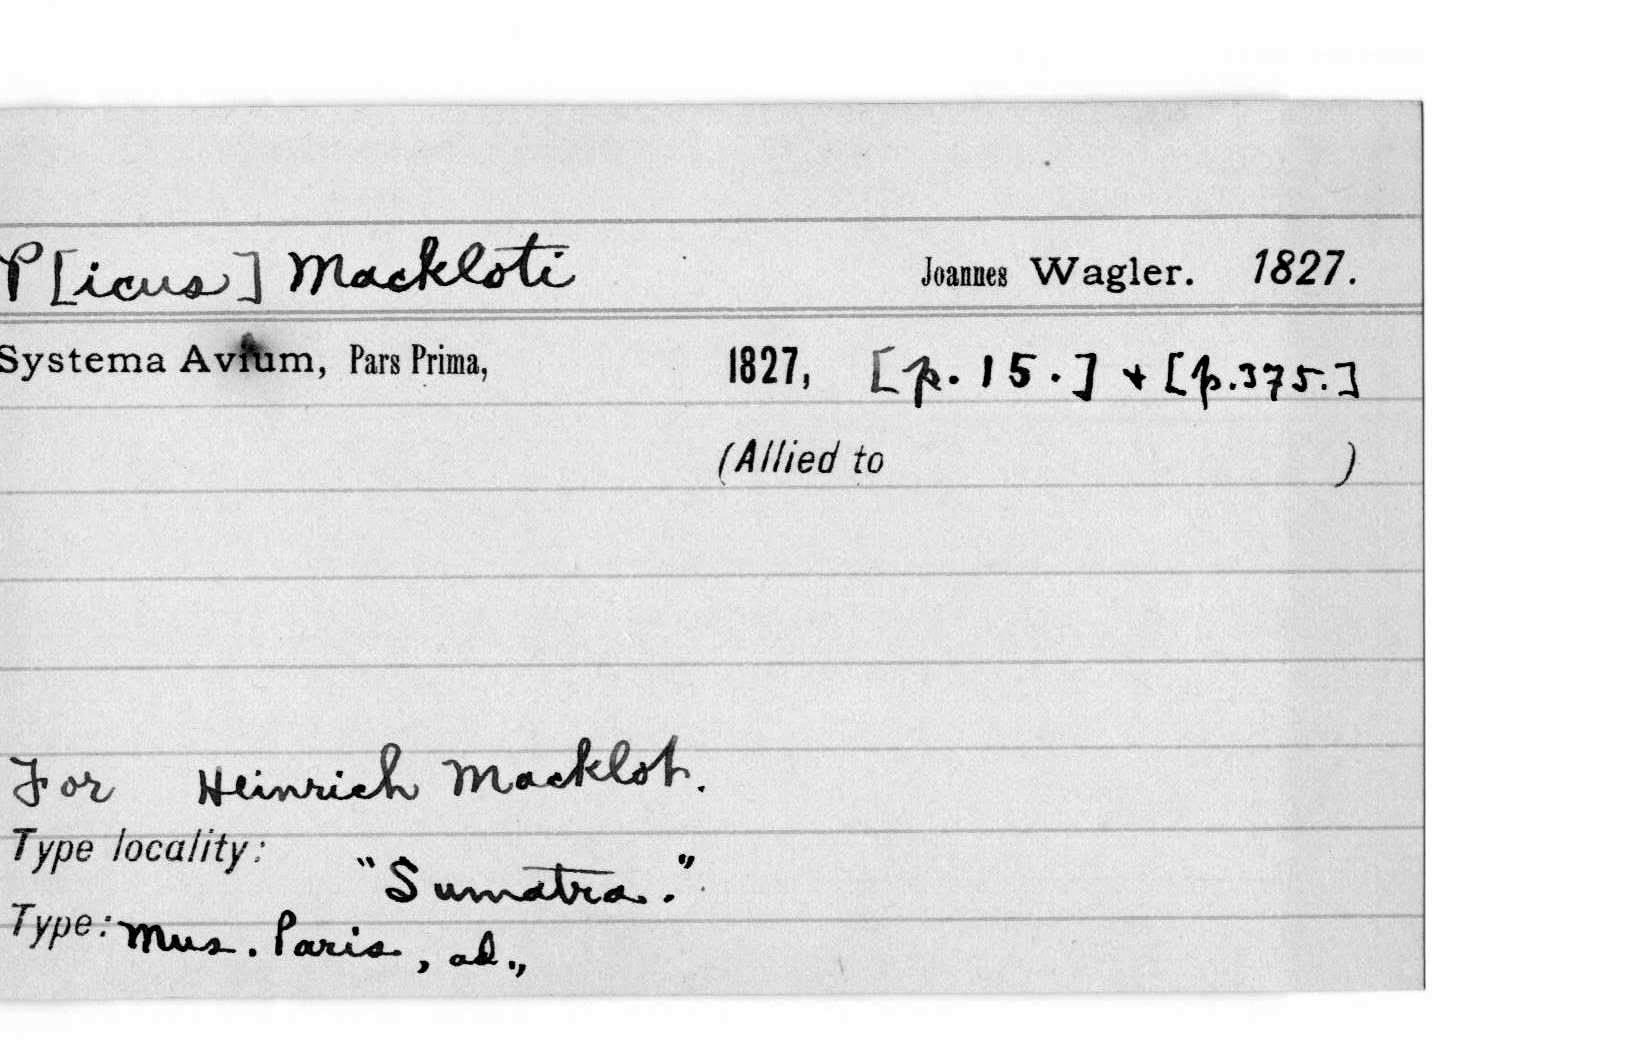 P[icus] Mackloti Joannes Wagler. 1827.
Systema Avium, Pars Prima, 1827, [p. 15.] + [p.375.]
(Allied to )
For Heinrich Macklot.
Type locality:
"Sumatra."
Type: Mus. Paris, ad.,